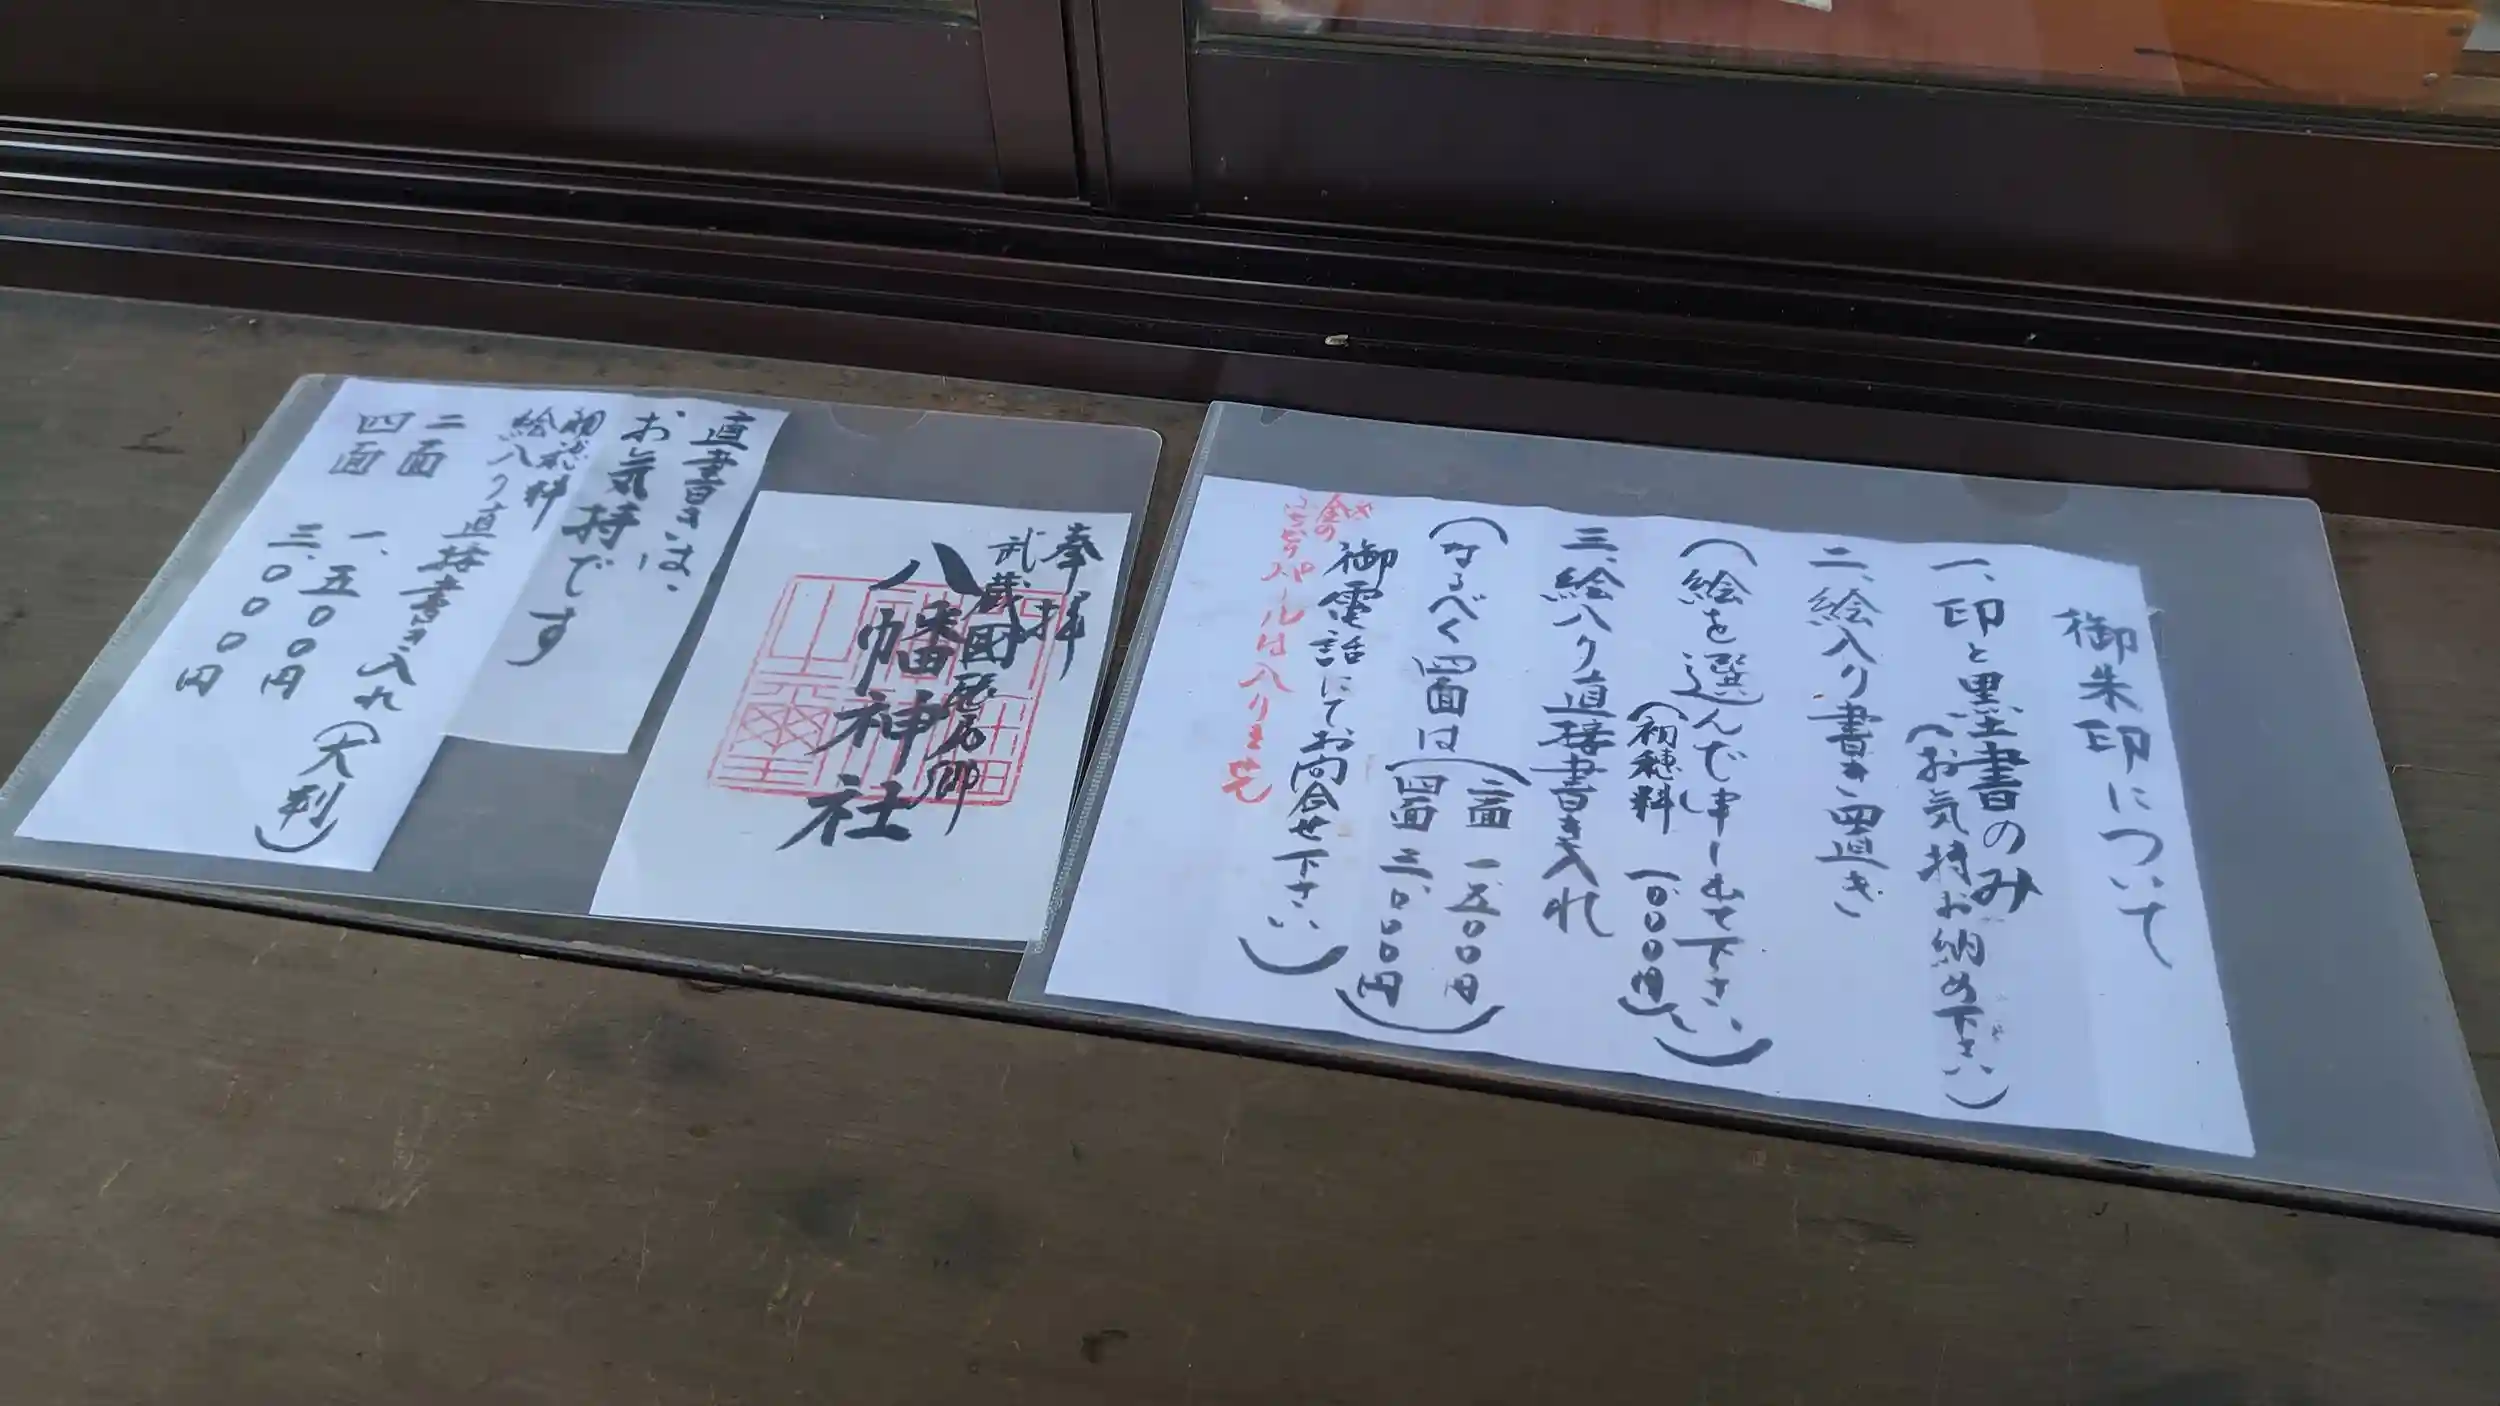 御朱印について
一、印と墨書のみ
（お気持お納め下さい）
二、絵入り書き置き
（絵を選んで申し出て下さい）
（初穂料 一、０００円）
三、絵入り直接書き入れ
（二面 一、五００円
四面 三、０００円）
（なるべく四面は
御電話にてお問合せ下さい）
※金の
シールは入りません
奉拝
武蔵国
八幡神社
直書きは、
お気持です
初穂料
絵入り直接書き入れ（大判）
二面 一、五００円
四面 三、０００円